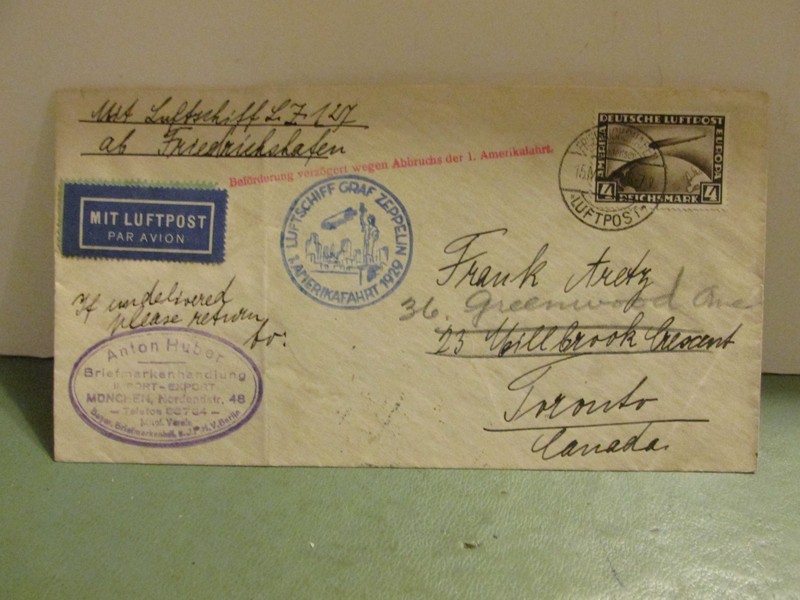 Mit Luftschiff L.Z. 127
ab Friedrichshafen
Beförderung verzögert wegen Abbruchs der 1. Amerikafahrt.
DEUTSCHE LUFTPOST
AMERIKA
EUROPA
4 REICHSMARK 4
LUFTPOST
MIT LUFTPOST
PAR AVION
LUFTSCHIFF GRAF ZEPPELIN
1. AMERIKAFAHRT 1929
Frank Aretz
36. Greenwood Ave
23 Millbrook Crescent
Toronto
Canada.
If undelivered
please return
to:
Anton Huber
Briefmarkenhandlung
IMPORT-EXPORT
MÜNCHEN, Nordendstr. 48
— Telefon —